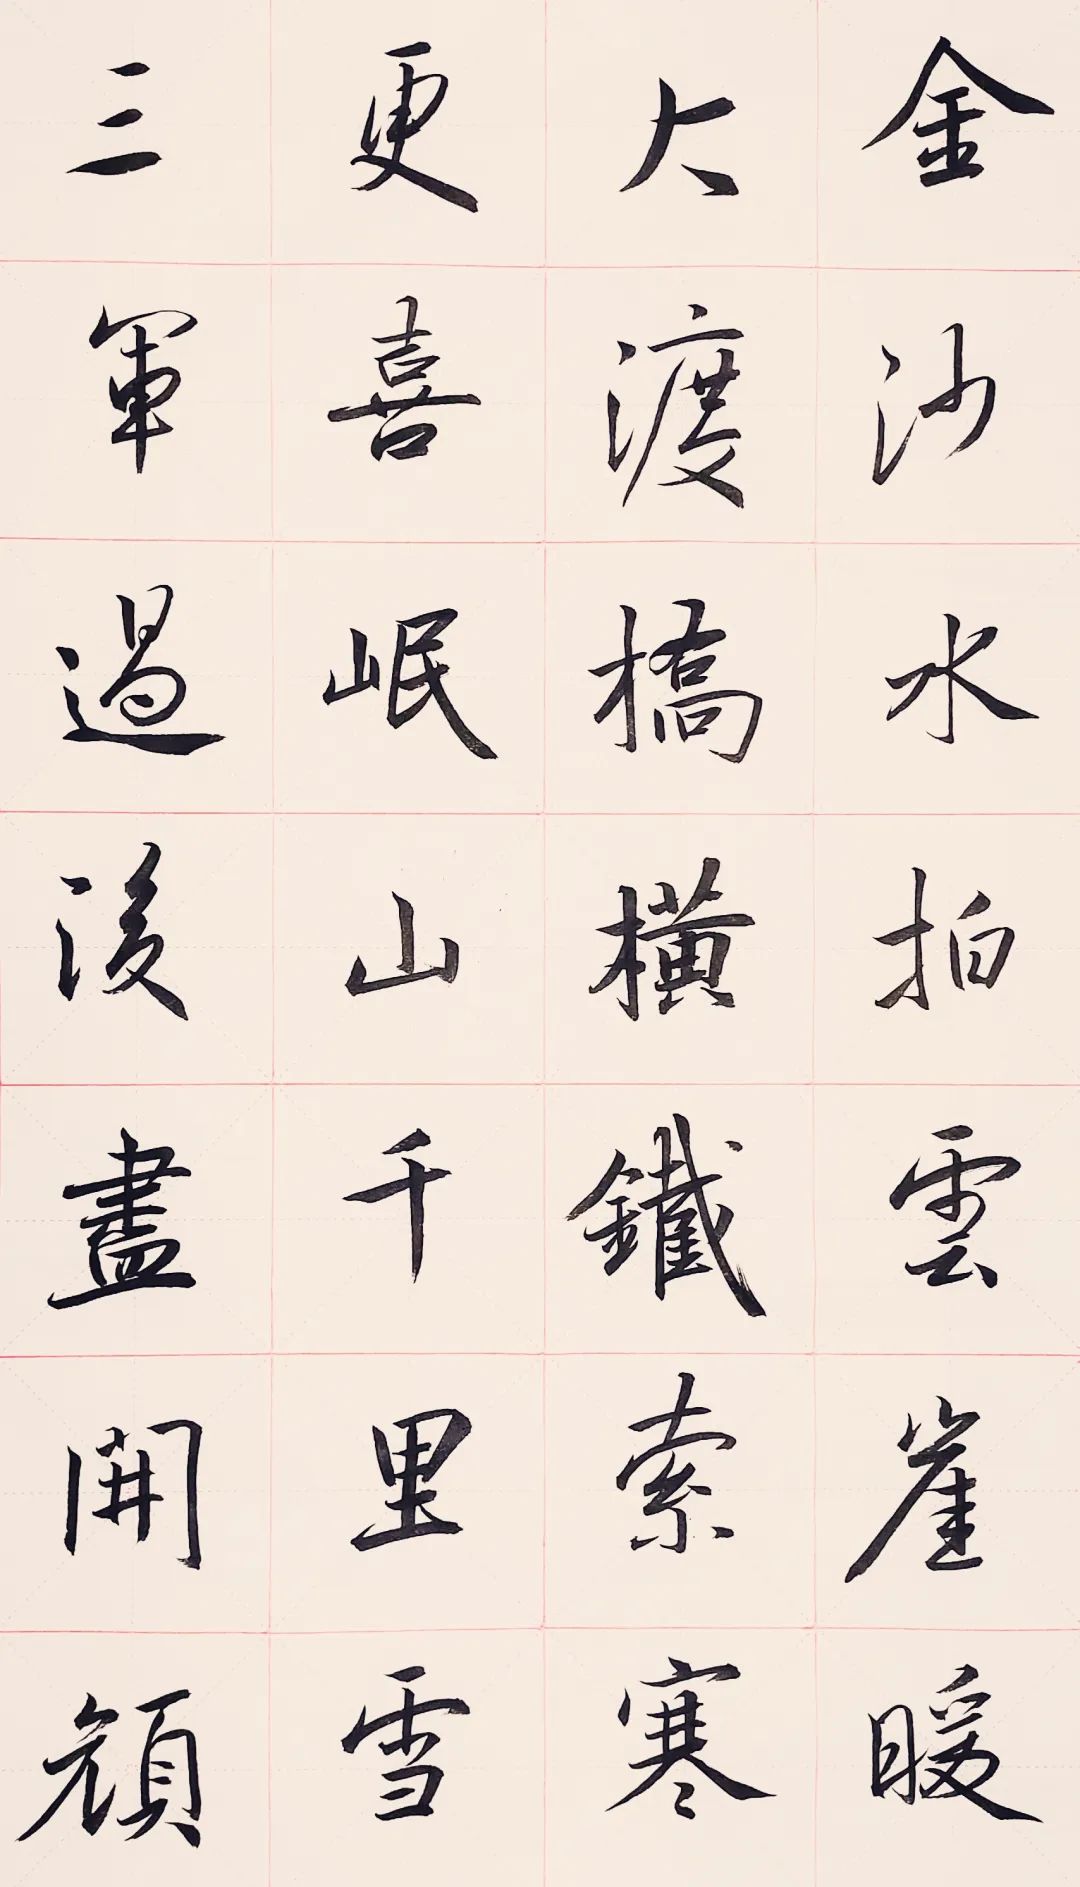 金沙水拍雲崖暖
大渡橋橫鐵索寒
更喜岷山千里雪
三軍過後盡開顏